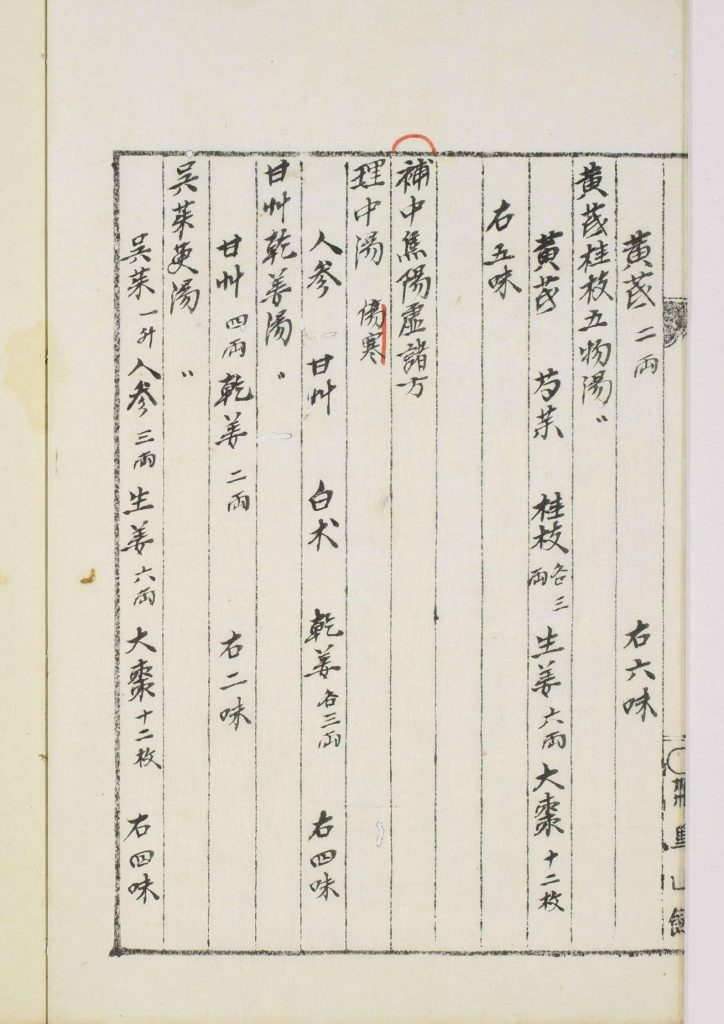 黄芪 二両 右六味
黄芪桂枝五物湯〃
黄芪 芍薬 桂枝 各三両 生姜 六両 大棗 十二枚
右五味
補中焦陽虚諸方
理中湯 傷寒
人参 甘艸 白朮 乾姜 各三両 右四味
甘艸乾姜湯〃
甘艸 四両 乾姜 二両 右二味
呉茱萸湯〃
呉茱 一升 人参 三両 生姜 六両 大棗 十二枚 右四味